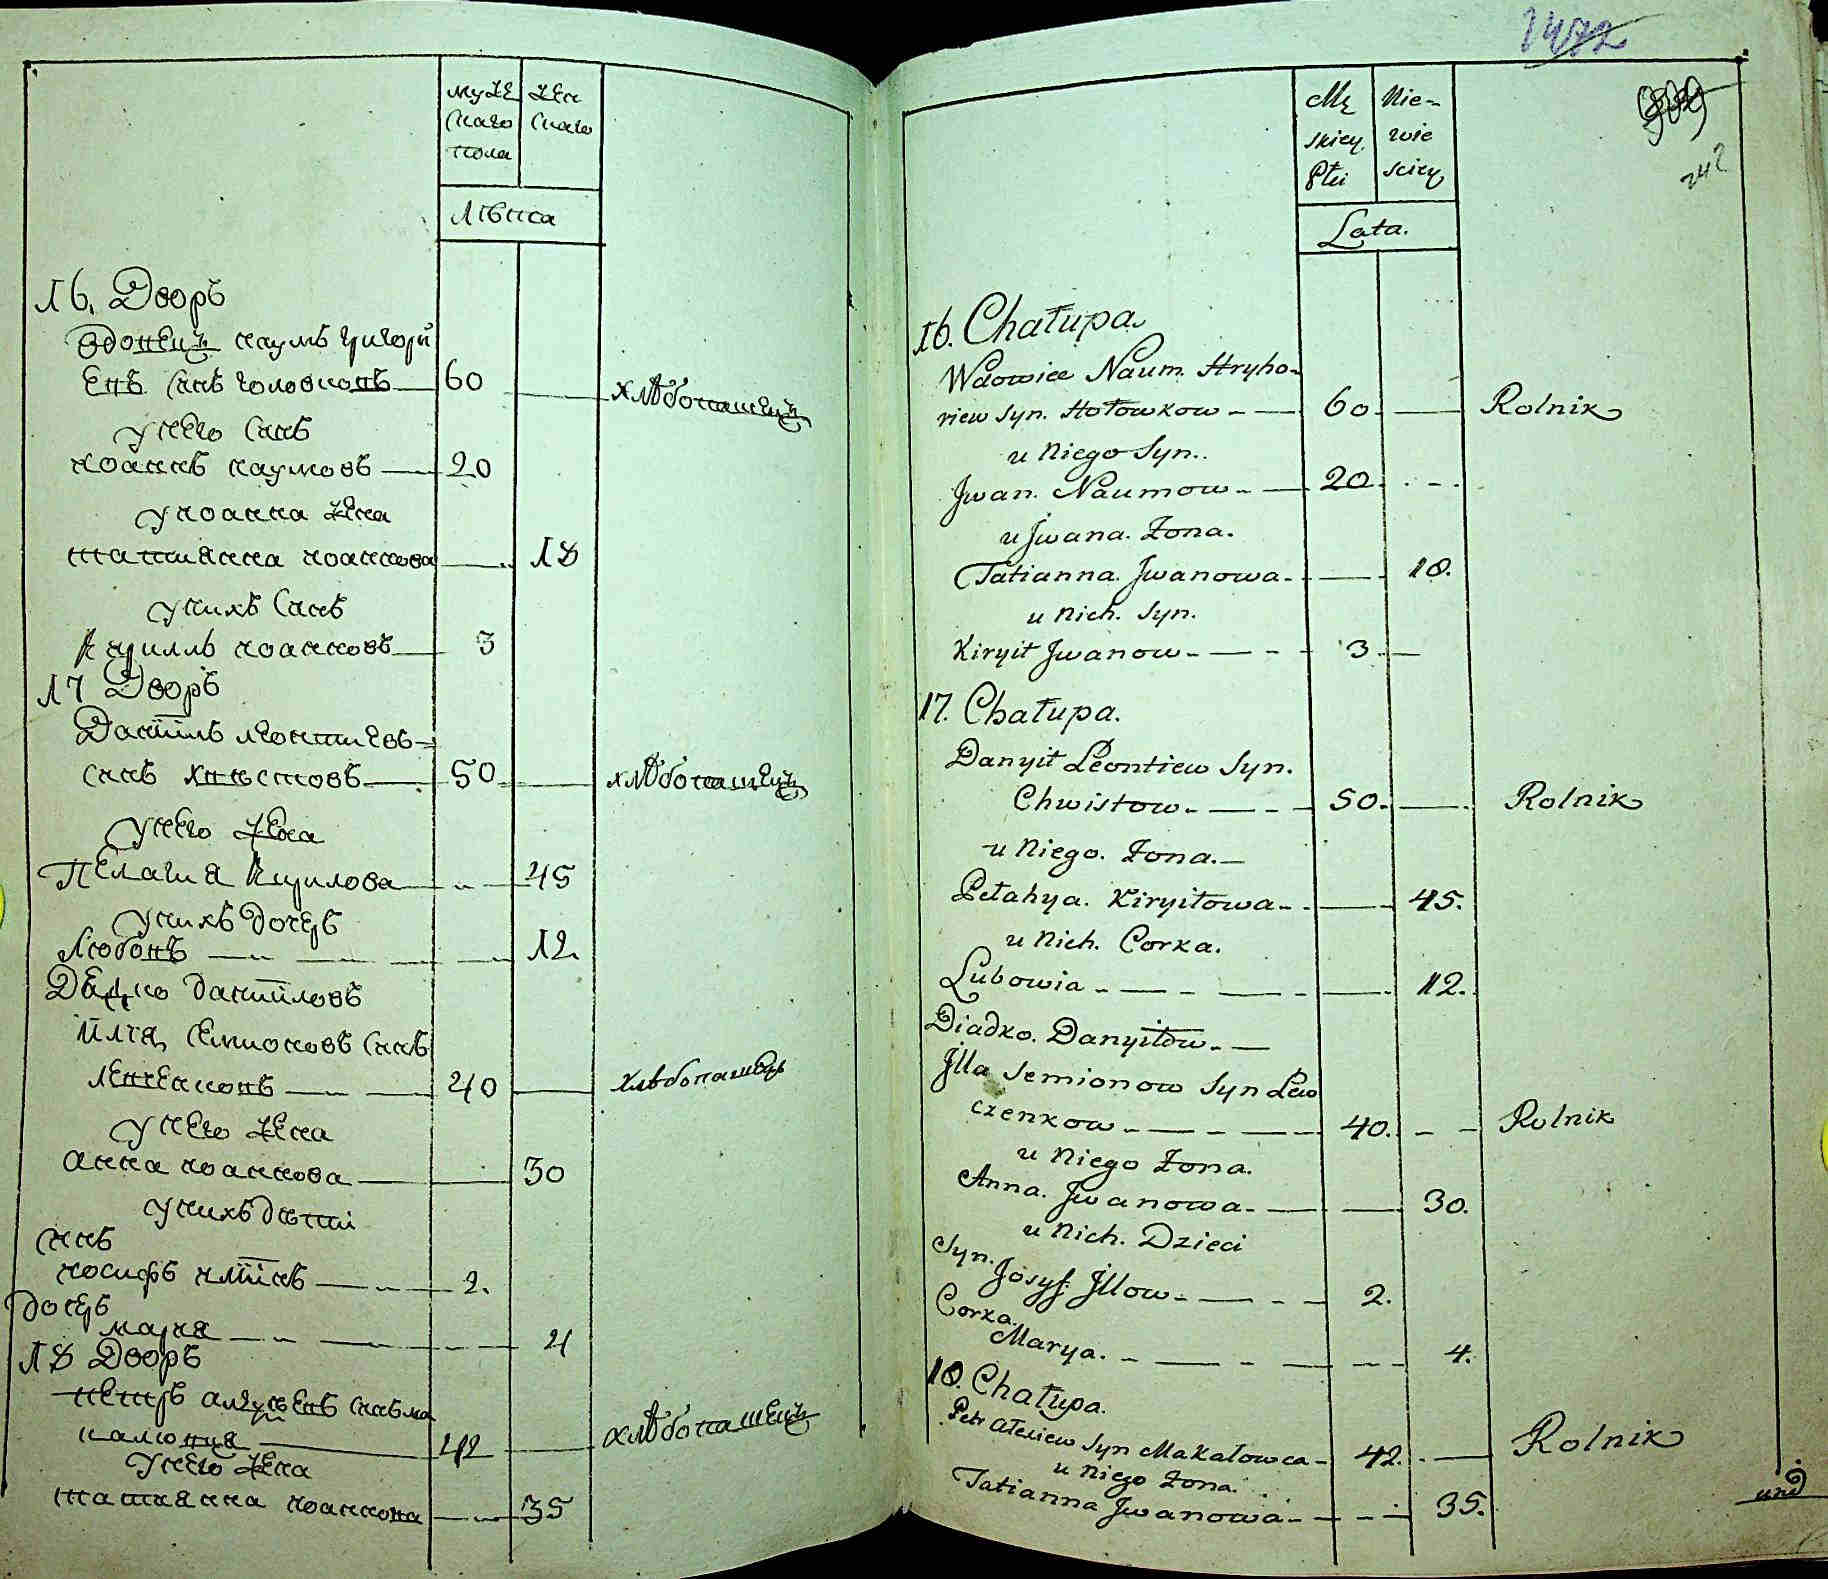 муже
скаго
пола
жен
скаго
Лѣта
16. Дворъ
Вдовецъ наумъ григори
евъ снъ головковъ 60 хлѣбопашецъ
у него снъ
иоаннъ наумовъ 20
у иоанна жена
татианна иоаннова 18
у нихъ снъ
Кирилъ иоанновъ 3
17 Дворъ
Даниилъ леонтиевъ
снъ хвистовъ 50 хлѣбопашецъ
у него жена
Пелагия Кирилова 45
у нихъ дочерь
Любовь 12.
Дѣдко даниловъ
илія семионовъ снъ
левченковъ 40 хлѣбопашецъ
у него жена
анна иоаннова 30
у нихъ дѣти
снъ
иосифъ илиинъ 2.
дочерь
мария 4
18 Дворъ
петръ снъ ма
каловця 42 хлѣбопашецъ
у него жена
татианна иоаннова 35
1472
242
Mę
skiey
Płci
Nie-
wie
sciey
Lata.
16. Chałupa.
Wdowiec Naum. Hryho-
riew Syn. Hołowkow 60. Rolnik
u Niego Syn.
Jwan. Naumow 20.
u Jwana. Żona.
Tatianna. Jwanowa 18.
u Nich. Syn.
Kiryił Jwanow 3.
17. Chałupa.
Danyił Leontiew Syn.
Chwistow 50. Rolnik
u Niego. Żona.
Pełahya. Kiryiłowa 45.
u Nich. Corka.
Lubowia 12.
Diadko. Danyiłow
Jlla Semionow Syn Lew
czenkow 40. Rolnik
u Niego Żona.
Anna. Jwanowa 30.
u Nich. Dzieci
Syn.
Josyf. Jllow 2.
Corka.
Marya. 4.
18. Chałupa.
Petr Ałexiew Syn Makałowca 42. Rolnik
u Niego Żona.
Tatianna Jwanowa 35.